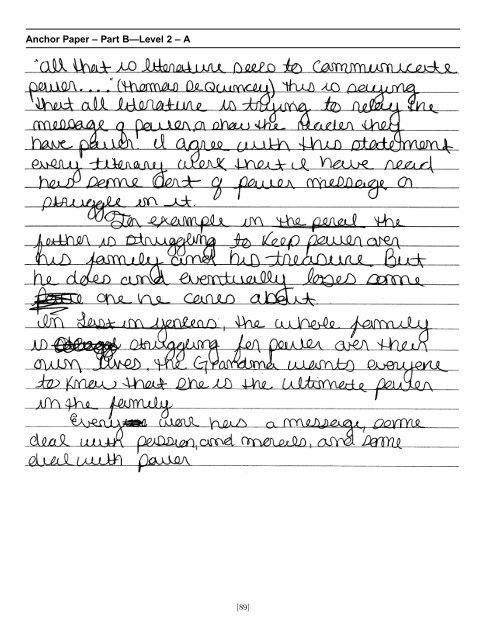 Anchor Paper – Part B—Level 2 – A
"all that is literature seeks to communicate
power...." (Thomas De Quincey) this is saying
that all literature is trying to relay the
message of power, or show the reader they
have power. I agree with this statement
every literary work that I have read
has some sort of power message or
struggle in it.
For example in the pearl the
father is struggling to keep power over
his family and his treasure. But
he does and eventually loses some
one he cares about.
In Lost in yonkers, the whole family
is struggling for power over their
own lives. the Grandma wants everyone
to know that she is the ultimate power
in the family
Every work has a message, some
deal with passion, and morals, and some
deal with power
[89]